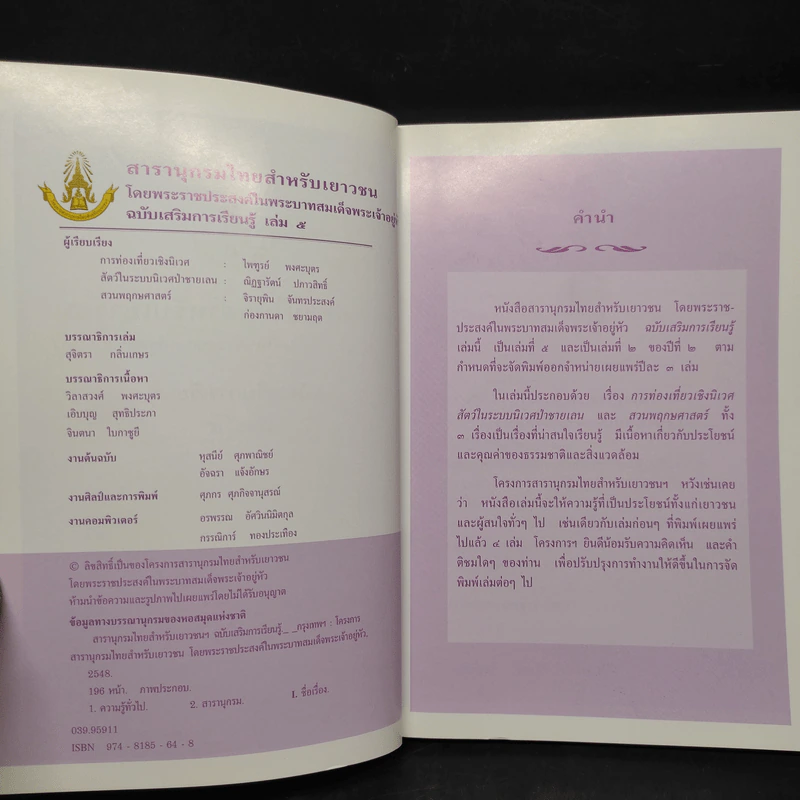 สารานุกรมไทยสำหรับเยาวชน
โดยพระราชประสงค์ในพระบาทสมเด็จพระเจ้าอยู่หัว
ฉบับเสริมการเรียนรู้ เล่ม ๕
ผู้เรียบเรียง
การท่องเที่ยวเชิงนิเวศ : ไพฑูรย์ พงศะบุตร
สัตว์ในระบบนิเวศป่าชายเลน : ณิฏฐารัตน์ ปภาวสิทธิ์
สวนพฤกษศาสตร์ : จิรายุพิน จันทรประสงค์
ก่องกานดา ชยามฤต
บรรณาธิการเล่ม
สุจิตรา กลิ่นเกษร
บรรณาธิการเนื้อหา
วิลาสวงศ์ พงศะบุตร
เอิบบุญ สุทธิประภา
จินตนา ใบกาซูยี
งานต้นฉบับ หุสนีย์ ศุภพาณิชย์
อัจฉรา แจ้งอักษร
งานศิลป์และการพิมพ์ ศุภกร ศุภกิจจานุสรณ์
งานคอมพิวเตอร์ อรพรรณ อัศวินนิมิตกุล
กรรณิการ์ ทองประเทือง
© ลิขสิทธิ์เป็นของโครงการสารานุกรมไทยสำหรับเยาวชน
โดยพระราชประสงค์ในพระบาทสมเด็จพระเจ้าอยู่หัว
ห้ามนำข้อความและรูปภาพไปเผยแพร่โดยไม่ได้รับอนุญาต
ข้อมูลทางบรรณานุกรมของหอสมุดแห่งชาติ
สารานุกรมไทยสำหรับเยาวชนฯ ฉบับเสริมการเรียนรู้_ _กรุงเทพฯ : โครงการ
สารานุกรมไทยสำหรับเยาวชน โดยพระราชประสงค์ในพระบาทสมเด็จพระเจ้าอยู่หัว,
2548.
196 หน้า. ภาพประกอบ.
1. ความรู้ทั่วไป. 2. สารานุกรม. I. ชื่อเรื่อง.
039.95911
ISBN 974 - 8185 - 64 - 8
คำนำ
หนังสือสารานุกรมไทยสำหรับเยาวชน โดยพระราช-
ประสงค์ในพระบาทสมเด็จพระเจ้าอยู่หัว ฉบับเสริมการเรียนรู้
เล่มนี้ เป็นเล่มที่ ๕ และเป็นเล่มที่ ๒ ของปีที่ ๒ ตาม
กำหนดที่จะจัดพิมพ์ออกจำหน่ายเผยแพร่ปีละ ๓ เล่ม
ในเล่มนี้ประกอบด้วย เรื่อง การท่องเที่ยวเชิงนิเวศ
สัตว์ในระบบนิเวศป่าชายเลน และ สวนพฤกษศาสตร์ ทั้ง
๓ เรื่องเป็นเรื่องที่น่าสนใจเรียนรู้ มีเนื้อหาเกี่ยวกับประโยชน์
และคุณค่าของธรรมชาติและสิ่งแวดล้อม
โครงการสารานุกรมไทยสำหรับเยาวชนฯ หวังเช่นเคย
ว่า หนังสือเล่มนี้จะให้ความรู้ที่เป็นประโยชน์ทั้งแก่เยาวชน
และผู้สนใจทั่วๆ ไป เช่นเดียวกับเล่มก่อนๆ ที่พิมพ์เผยแพร่
ไปแล้ว ๔ เล่ม โครงการฯ ยินดีน้อมรับความคิดเห็น และคำ
ติชมใดๆ ของท่าน เพื่อปรับปรุงการทำงานให้ดีขึ้นในการจัด
พิมพ์เล่มต่อๆ ไป